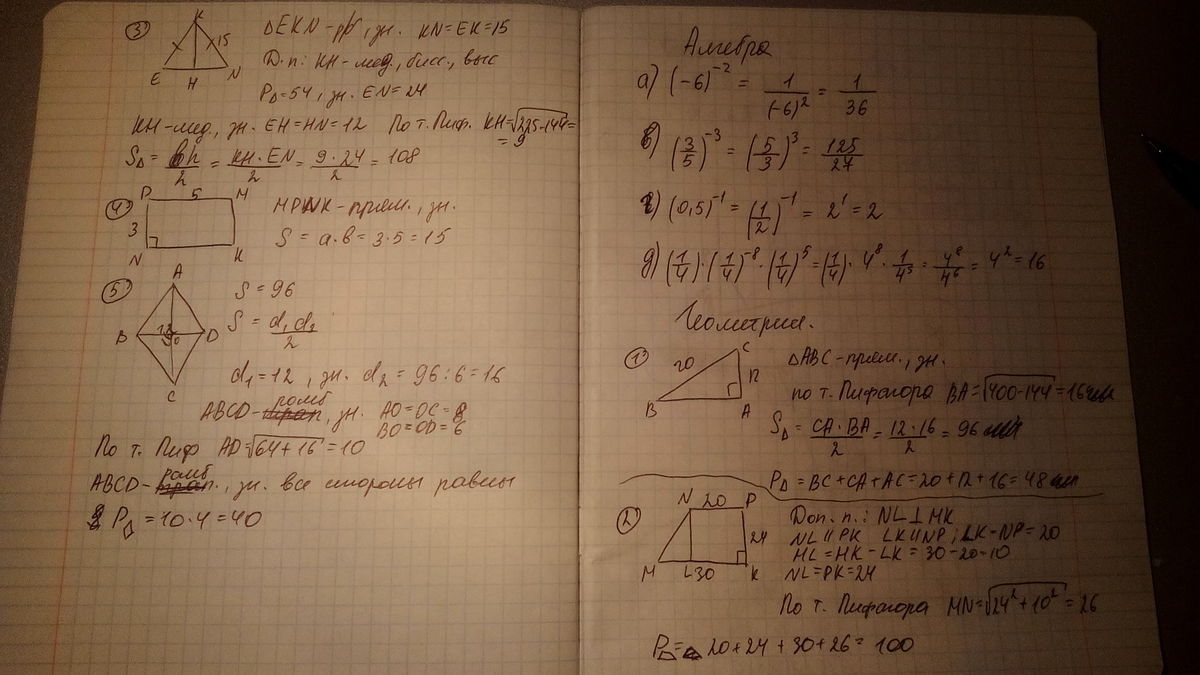 3)
K
15
E
H
N
ΔEKN - р/б, зн. KN = EK = 15
Д.п.: KH - мед., бисс., выс
PΔ = 54, зн. EN = 24
KH - мед, зн. EH = HN = 12 По т. Пиф. KH = √225-144 =
= 9
SΔ = bh/2 = KH·EN/2 = 9·24/2 = 108
4)
P 5 M
3
N K
MPNK - прям., зн.
S = a·b = 3·5 = 15
5)
A
B
D
C
12
S = 96
S = d₁d₂/2
d₁ = 12, зн. d₂ = 96:6 = 16
ABCD - ромб, зн. AO = OC = 8
BO = OD = 6
По т. Пиф AD = √64+16 = 10
ABCD - ромб, зн. все стороны равны
P = 10·4 = 40
Алгебра
а) (-6)⁻² = 1/(-6)² = 1/36
б) (3/5)⁻³ = (5/3)³ = 125/27
г) (0,5)⁻¹ = (1/2)⁻¹ = 2¹ = 2
д) (1/4)·(1/4)⁻⁸·(1/4)⁵ = (1/4)·4⁸·1/4⁵ = 4⁸/4⁶ = 4² = 16
Геометрия.
1)
C
20
12
B
A
ΔABC - прям., зн.
по т. Пифагора BA = √400-144 = 16
SΔ = CA·BA/2 = 12·16/2 = 96
PΔ = BC + CA + AC = 20 + 12 + 16 = 48
2)
N 20 P
24
M L 30 K
Доп. п.: NL ⊥ MK
NL || PK LK || NP; LK = NP = 20
ML = MK - LK = 30 - 20 = 10
NL = PK = 24
По т. Пифагора MN = √24² + 10² = 26
P = 20 + 24 + 30 + 26 = 100